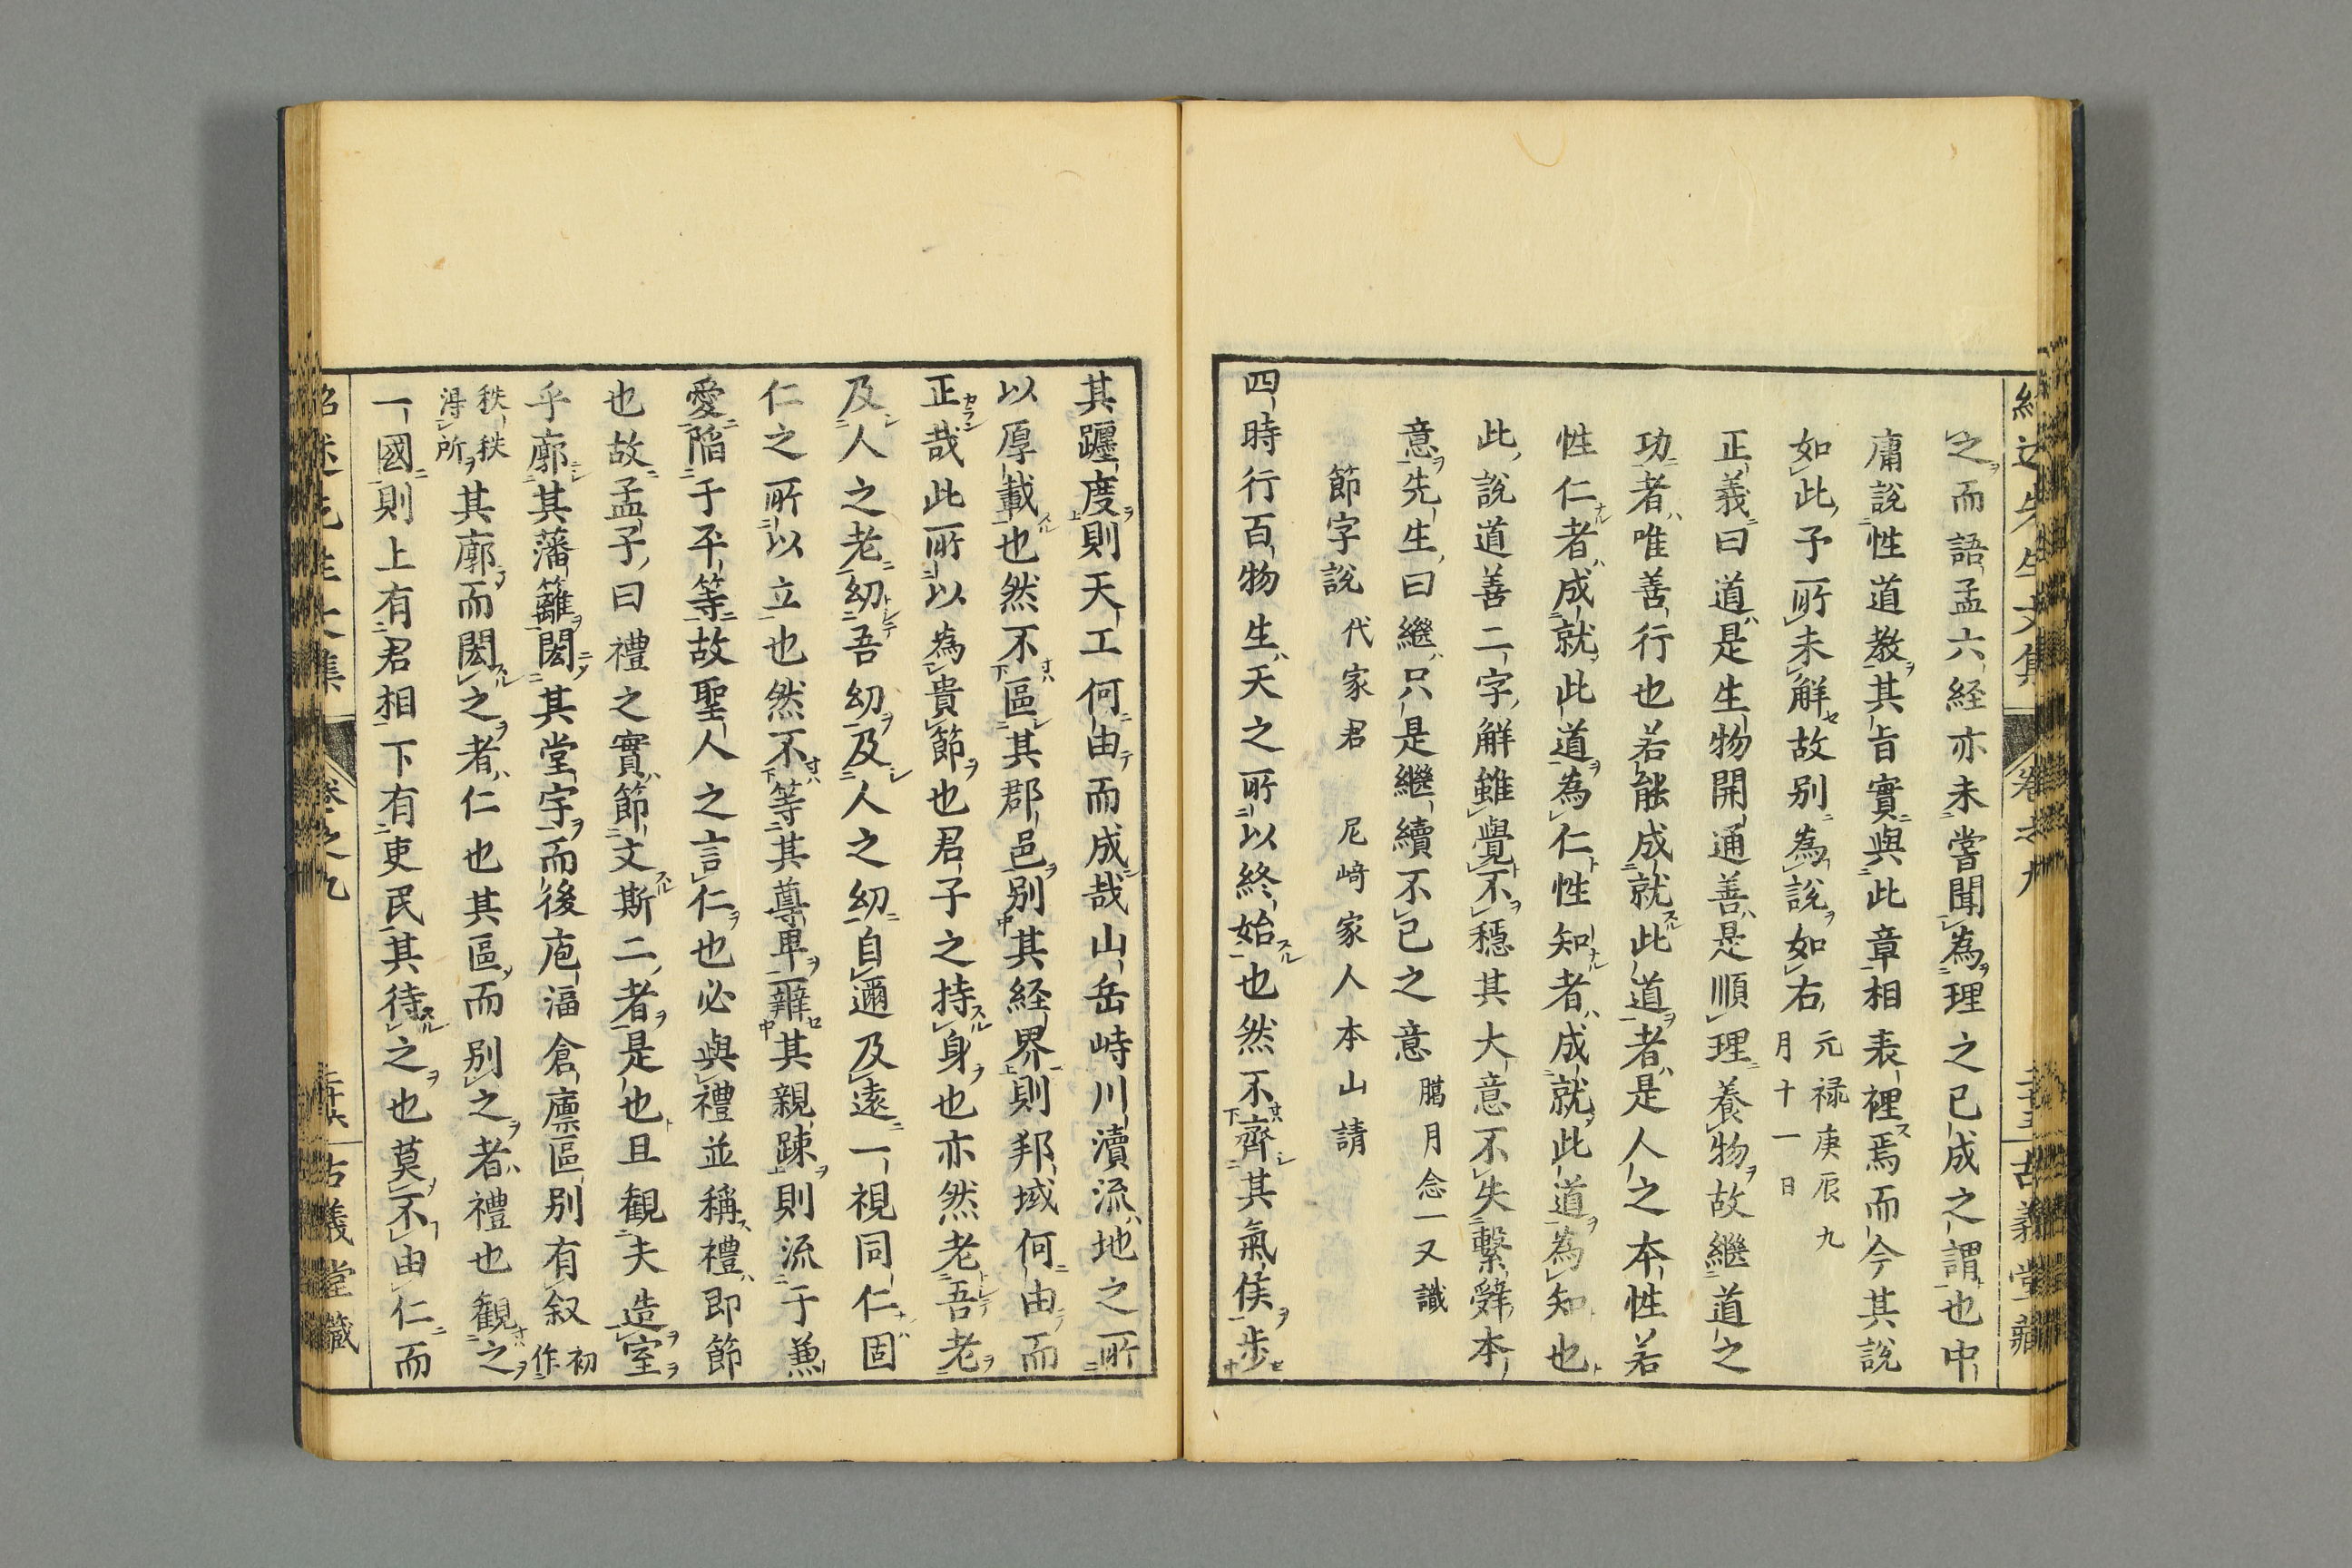 紹述先生文集 卷之九 二十五 古義堂藏
之而語孟六経亦未嘗聞為理之已成之謂也中
庸說性道教其旨實與此章相表裡焉而今其說
如此予所未解故別為說如右 元禄庚辰九月十一日
正義曰道是生物開通善是順理養物故繼道之
功者唯善行也若能成就此道者是人之本性若
性仁者成就此道為仁性知者成就此道為知也
此說道善二字解雖覺不穩其大意不失繫辭本
意先生曰繼只是繼續不已之意 臈月念一又識
節字說 代家君 尼﨑家人本山請
四時行百物生天之所以終始也然不齊其氣侯步
其躔度則天工何由而成哉山岳峙川瀆流地之所
以厚載也然不區其郡邑別其経界則邦域何由而
正哉此所以為貴節也君子之持身也亦然老吾老
及人之老幼吾幼及人之幼自邇及遠一視同仁固
仁之所以立也然不等其尊卑辨其親踈則流于兼
愛陷于平等故聖人之言仁也必與禮並稱禮即節
也故孟子曰禮之實節文斯二者是也且觀夫造室
乎廓其藩籬閎其堂宇而後庖湢倉廩區別有叙 初作
秩秩得所其廓而閎之者仁也其區而別之者禮也觀之
一國則上有君相下有吏民其待之也莫不由仁而
紹述先生文集 卷之九 二十六 古義堂藏